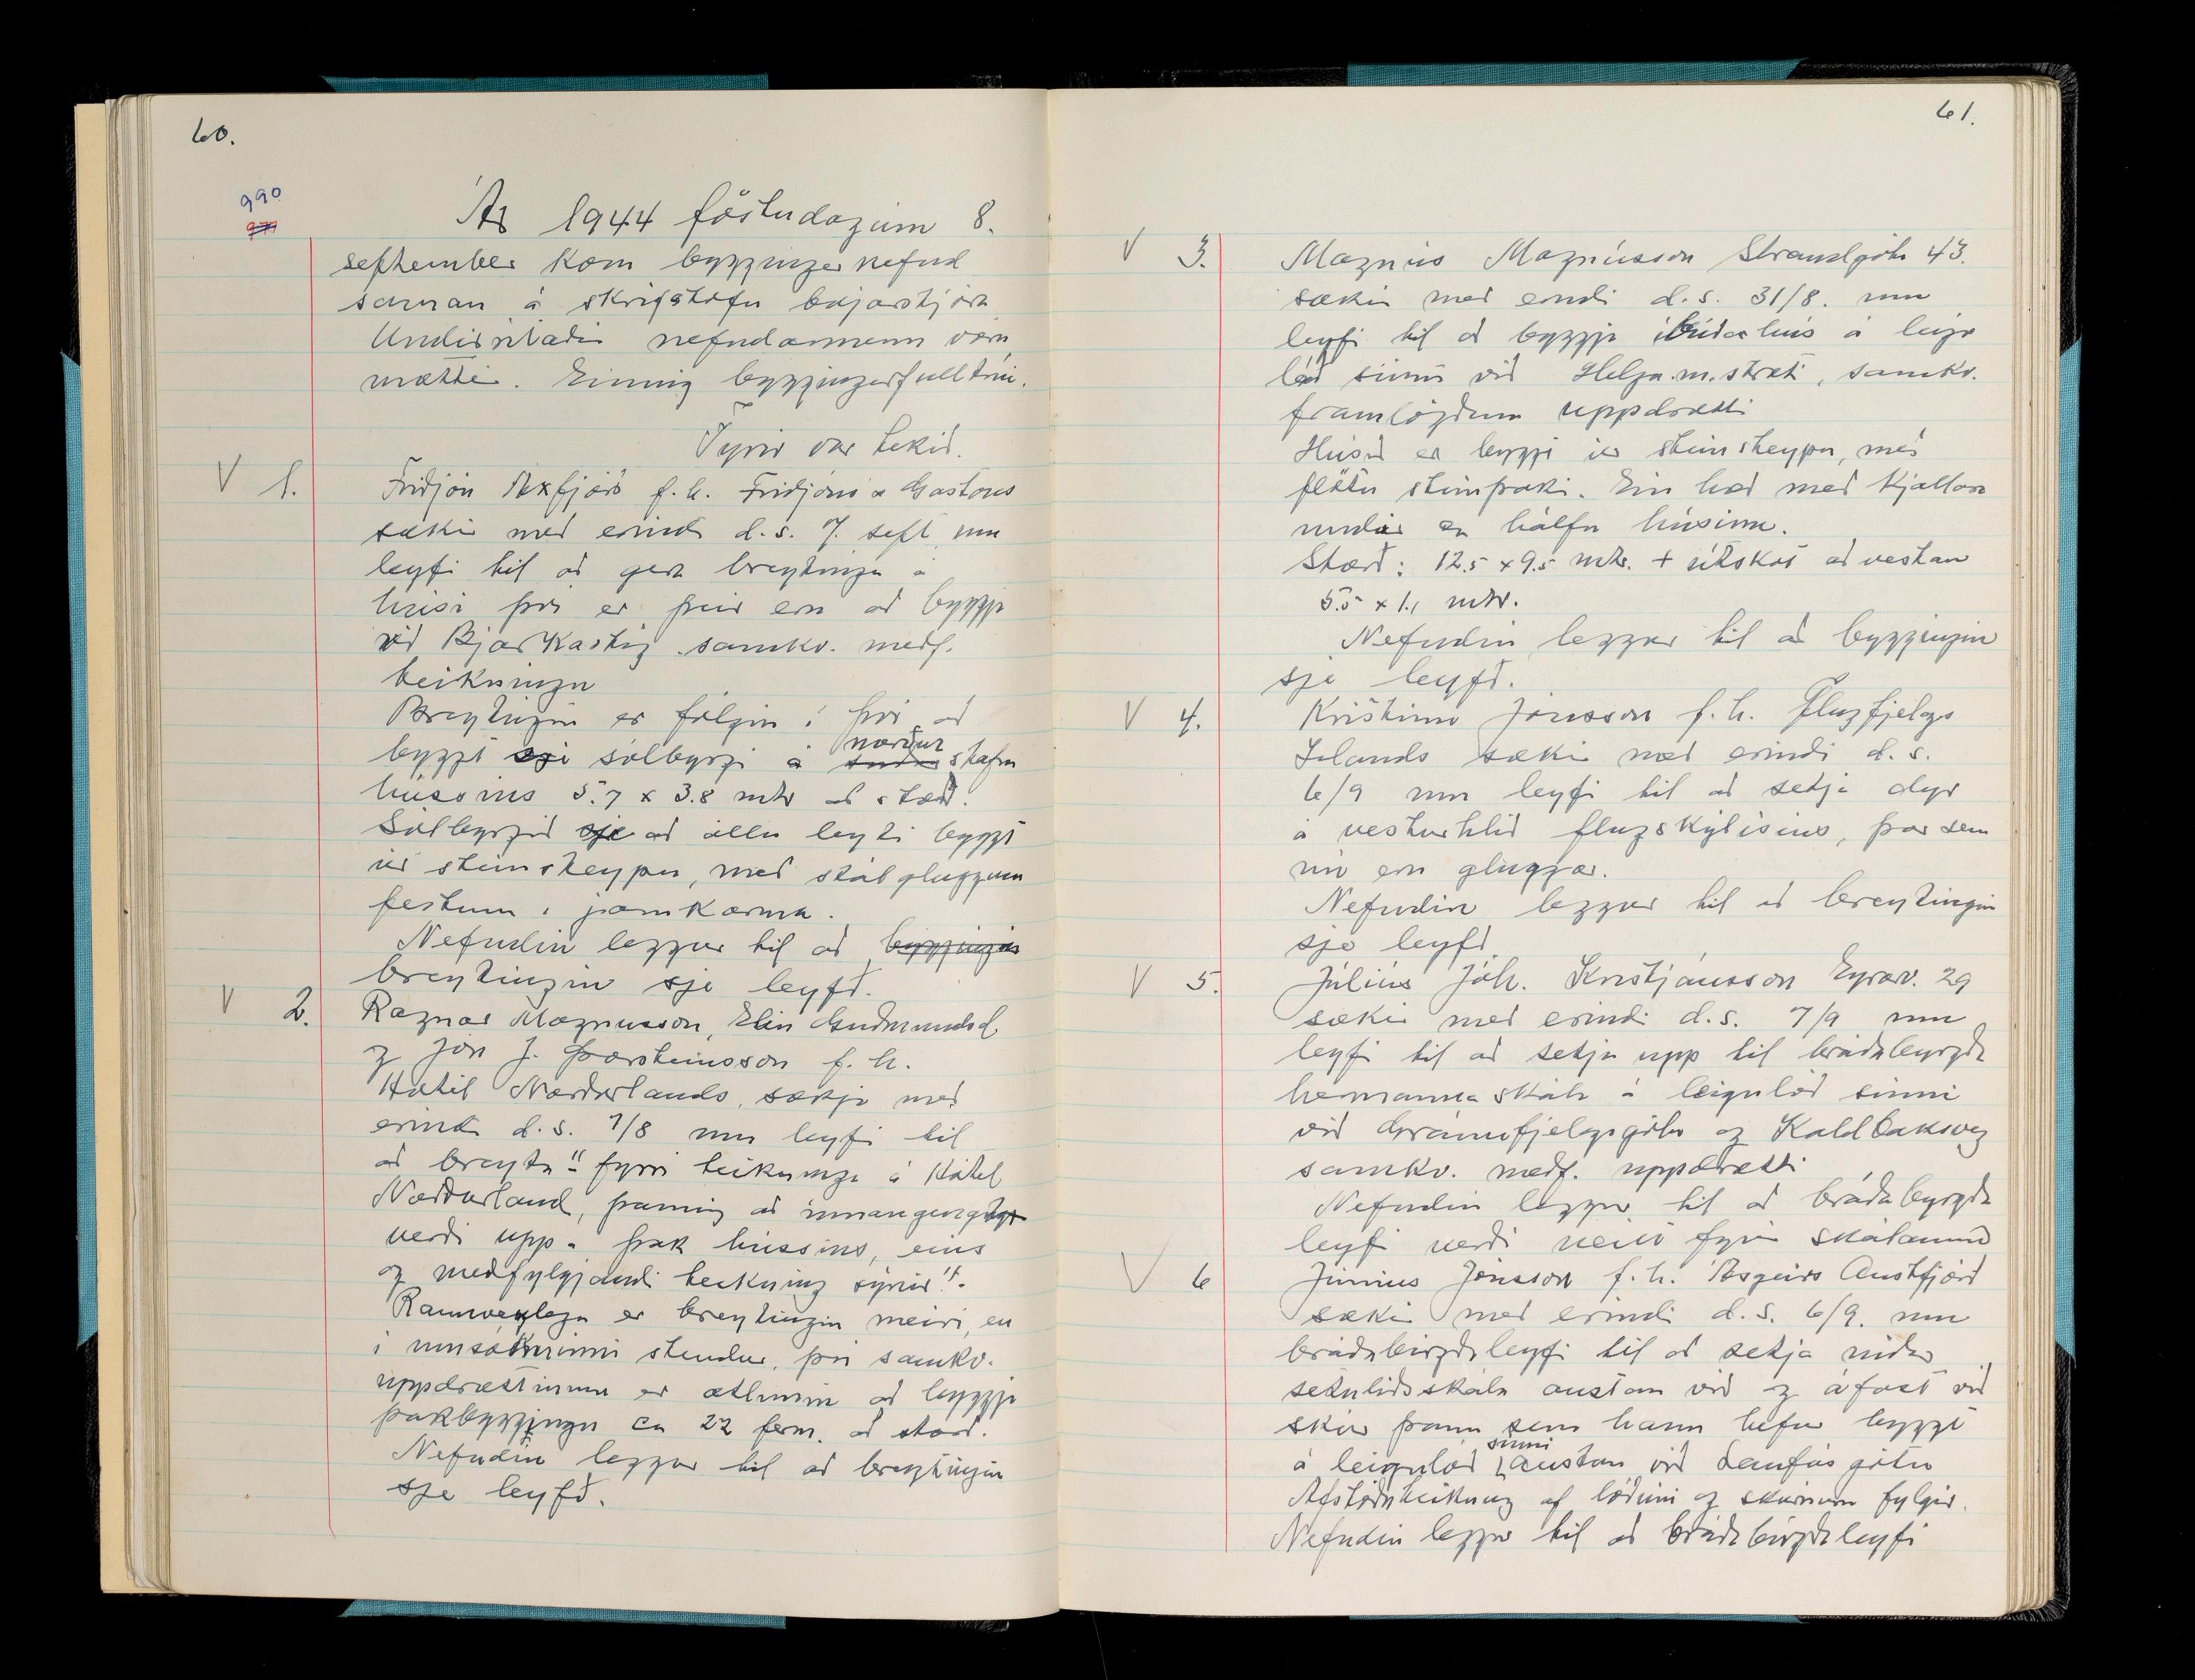 60.
990
Ár 1944 föstudaginn 8.
september kom bygginganefnd
saman á skrifstofu bæjarstjóra
Undirritaðir nefndarmenn voru
mættir. Einnig byggingarfulltrúi.
Fyrir var tekið.
V 1. Friðjón Axfjörð f.h. Friðjóns & Gastons
sækir með erindi d.s. 7. sept um
leyfi til að gera breytingu á
húsi því er þeir eru að byggja
við Bjarkastíg samkv. meðf.
teikningu
Breytingin er fólgin í því að
byggt sje sólbyrgi á norður stafn
hússins 5.7 x 3.8 mtr að stærð.
Sólbyrgið sje að öllu leyti byggt
úr steinsteypu, með stálgluggum
festum í járnkarma.
Nefndin leggur til að byggingin
breytingin sje leyfð.
V 2. Ragnar Magnusson, Elin Guðmundsd.
og Jón J. Þorsteinsson f.h.
Hótel Norðurlands, sækja með
erindi d.s. 7/8 um leyfi til
að breyta "fyrri teikningu á Hótel
Norðurland, þannig að innangengt
verði upp á þak hússins, eins
og meðfylgjandi teikning sýnir".
Raunverulega er breytingin meiri, en
í umsókninni stendur, því samkv.
uppdrættinum er ætlunin að byggja
þakbyggingu ca 22 ferm. að stærð.
Nefndin leggur til að breytingin
sje leyfð.
61.
V 3. Magnús Magnússon Strandgötu 43.
sækir með erindi d.s. 31/8. um
leyfi til að byggja íbúðarhús á leigu
lóð sinni við Helga.m.stræti, samkv.
framlögðum uppdrætti
Húsið er byggt úr steinsteypu, með
flötu steinþaki. Ein hæð með kjallara
undir ca hálfu húsinu.
Stærð: 12.5 x 9.5 mtr. + útskot að vestan
5.5 x 1.1 mtr.
Nefndin leggur til að byggingin
sje leyfð.
V 4. Kristinn Jónsson f.h. Flugfjelags
Islands sækir með erindi d.s.
6/9 um leyfi til að setja dyr
á vesturhlið flugskýlisins, þar sem
nú eru gluggar.
Nefndin leggur til að breytingin
sje leyfð
V 5. Júlíus Jóh. Kristjánsson Eyrarv. 29
sækir með erindi d.s. 7/9 um
leyfi til að setja upp til bráðabyrgða
hermannaskála á leigulóð sinni
við Gránufjelagsgötu og Kaldbaksveg
samkv. meðf. uppdrætti
Nefndin leggur til að bráðabyrgða
leyfi verði veitt fyrir skálanum
V 6 Júníus Jónsson f.h. Asgeirs Austfjörð
sækir með erindi d.s. 6/9. um
bráðabirgðaleyfi til að setja niður
setuliðsskála austan við og áfast við
skúr þann sem hann hefur byggt
á leigulóð sinni austan við Laufásgötu
Afstöðuteikning af lóðinni og skúrnum fylgir.
Nefndin leggur til að bráðabirgðaleyfi